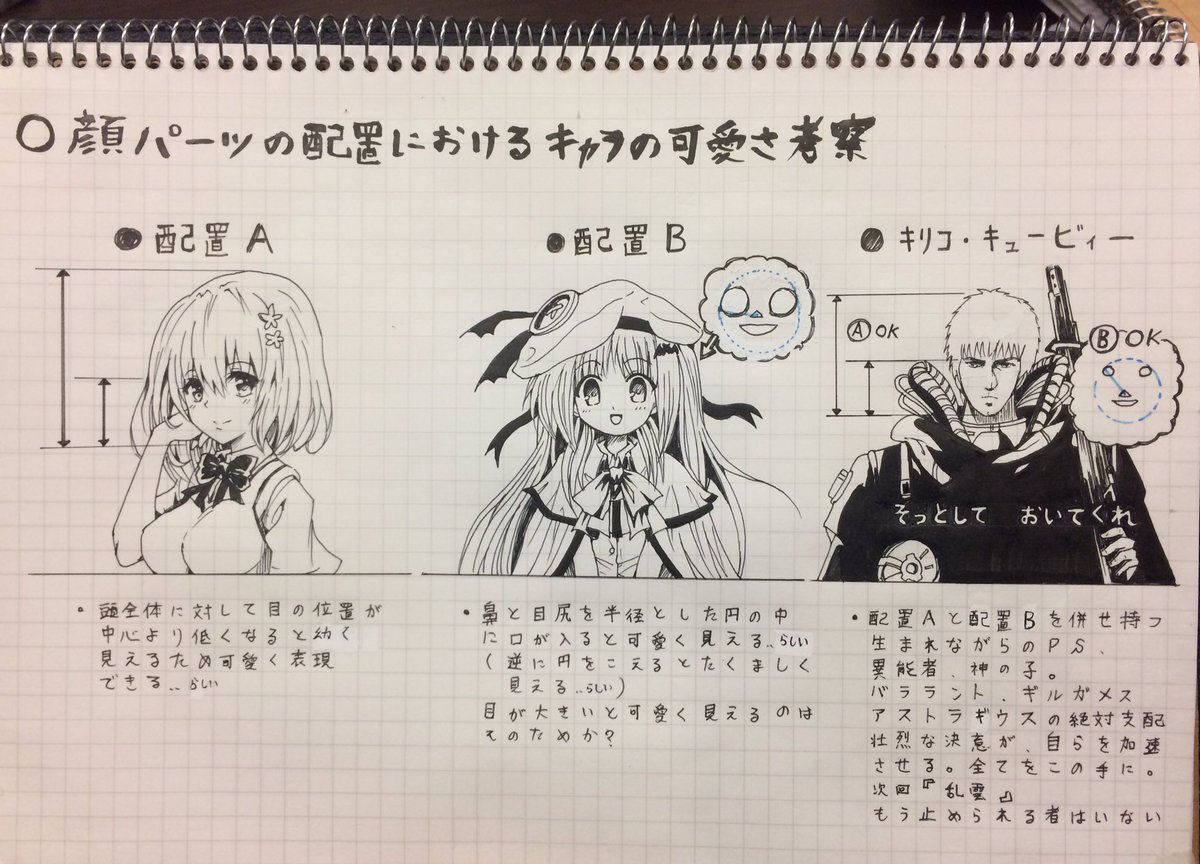 ○顔パーツの配置におけるキャラの可愛さ考察
●配置A
●配置B
●キリコ・キュービィー
Ⓐ OK
Ⓑ OK
そっとして おいてくれ
・頭全体に対して目の位置が
中心より低くなると幼く
見えるため可愛く表現
できる..らしい
・鼻と目尻を半径とした円の中
に口が入ると可愛く見える..らしい
(逆に円をこえるとたくましく
見える..らしい)
目が大きいと可愛く見えるのは
そのためか?
・配置Aと配置Bを併せ持つ
生まれながらのPS、
異能者、神の子。
バララント、ギルガメス
アストラギウスの絶対支配
壮烈な決意が、自らを加速
させる。全てをこの手に。
次回『乱雲』
もう止められる者はいない